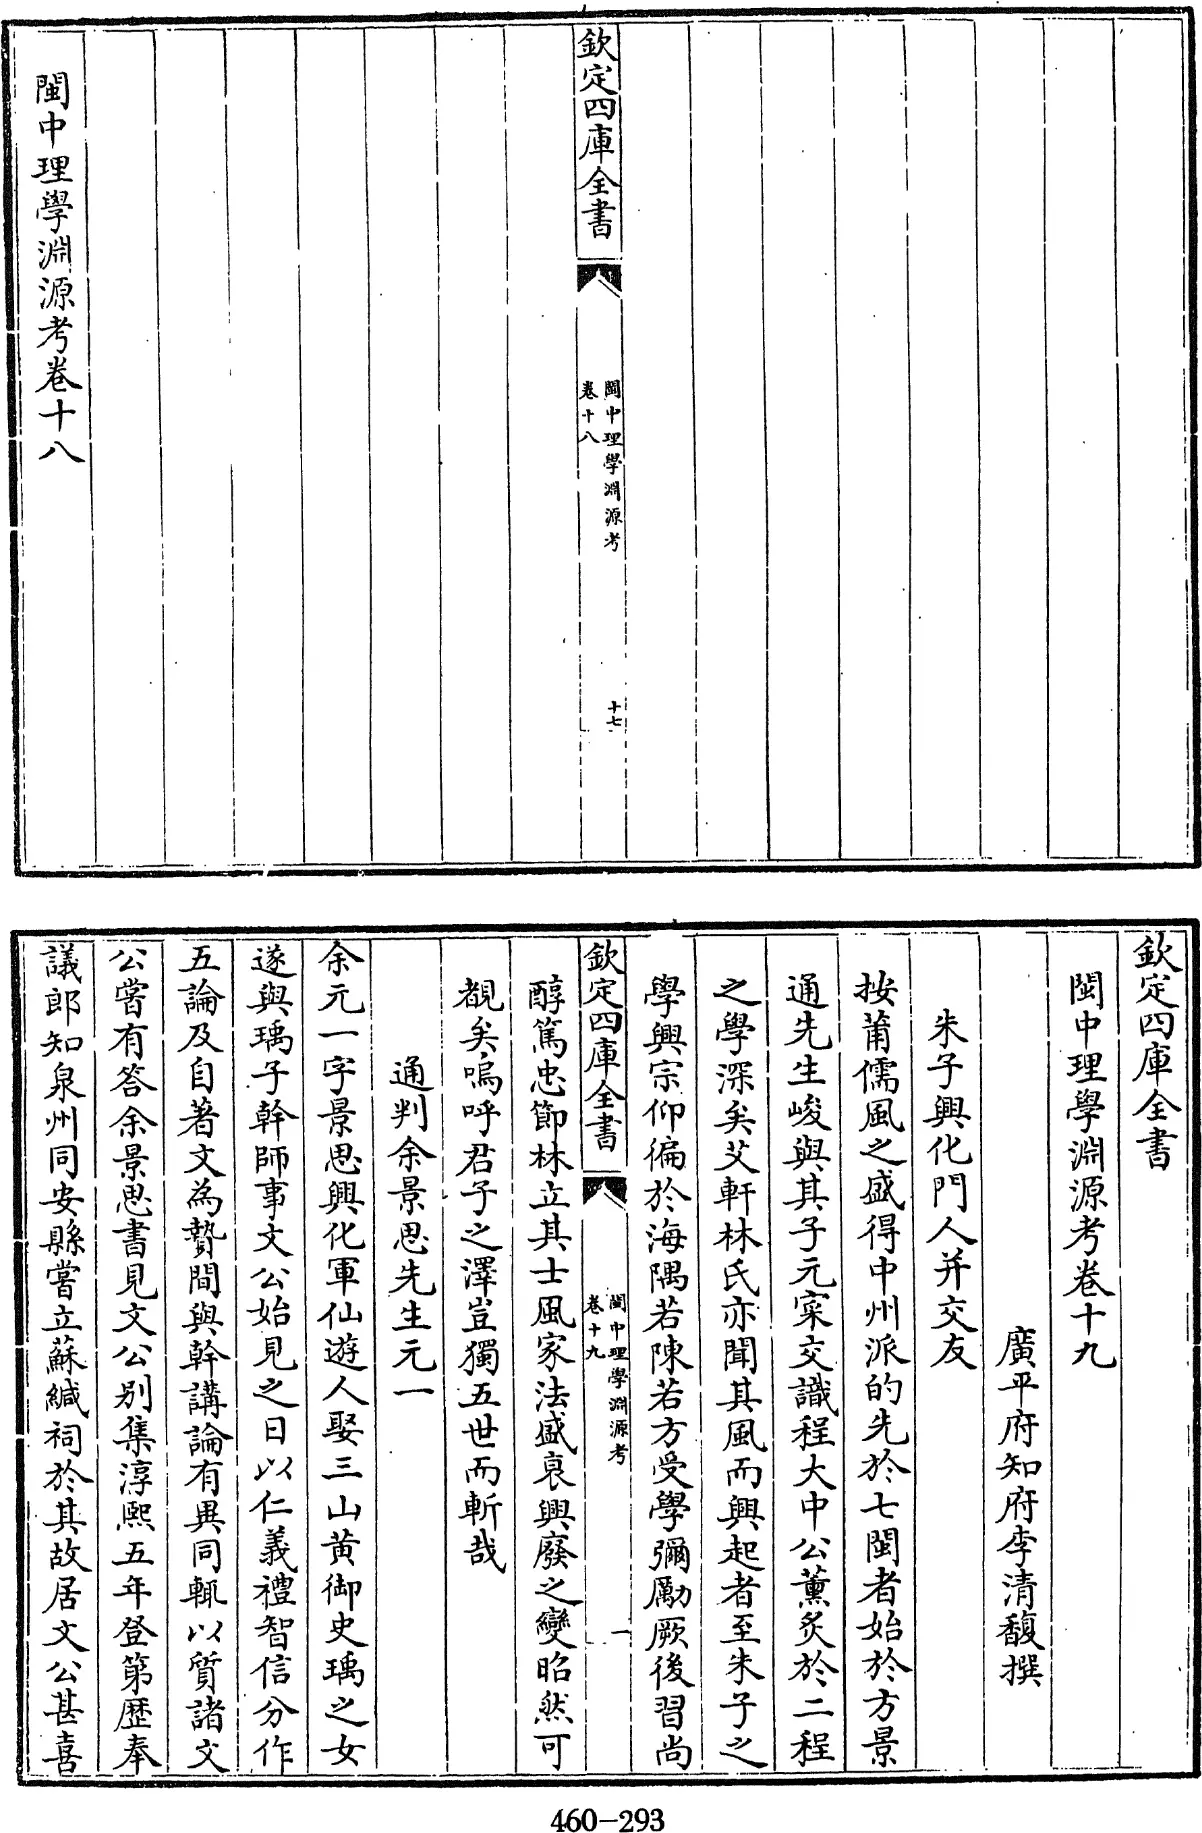 欽定四庫全書
閩中理學淵源考
卷十八
十七
閩中理學淵源考卷十八
欽定四庫全書
閩中理學淵源考卷十九
廣平府知府李清馥撰
朱子興化門人并交友
按莆儒風之盛得中州派的先於七閩者始於方景
通先生峻與其子元寀交識程大中公薰炙於二程
之學深矣艾軒林氏亦聞其風而興起者至朱子之
學興宗仰徧於海隅若陳若方受學彌勵厥後習尚
欽定四庫全書
閩中理學淵源考
卷十九
一
醇篤忠節林立其士風家法盛衰興廢之變昭然可
覩矣嗚呼君子之澤豈獨五世而斬哉
通判余景思先生元一
余元一字景思興化軍仙遊人娶三山黄御史瑀之女
遂與瑀子幹師事文公始見之日以仁義禮智信分作
五論及自著文為贄間與幹講論有異同輒以質諸文
公嘗有答余景思書見文公別集淳熙五年登第歷奉
議郎知泉州同安縣嘗立蘇緘祠於其故居文公甚喜
460-293